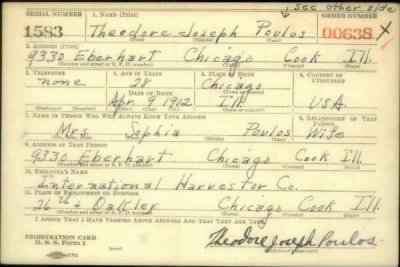 see other side
SERIAL NUMBER 1. NAME (Print) ORDER NUMBER
1583 Theodore Joseph Poulos 00638 X
(First) (Middle) (Last)
2. ADDRESS (Print)
9330 Eberhart Chicago Cook Ill.
(Number and street or R. F. D. number) (Town) (County) (State)
3. TELEPHONE 4. AGE IN YEARS 5. PLACE OF BIRTH 6. COUNTRY OF CITIZENSHIP
none 28 Chicago
DATE OF BIRTH
Apr. 9 1912 Ill. USA.
7. NAME OF PERSON WHO WILL ALWAYS KNOW YOUR ADDRESS 8. RELATIONSHIP OF THAT PERSON
Mrs. Sophia Poulos Wife
9. ADDRESS OF THAT PERSON
9330 Eberhart Chicago Cook Ill
(Number and street or R. F. D. number) (Town) (County) (State)
10. EMPLOYER'S NAME
International Harvestor Co.
11. PLACE OF EMPLOYMENT OR BUSINESS
26th + Oakley Chicago Cook Ill.
(Number and street or R. F. D. number) (Town) (County) (State)
I AFFIRM THAT I HAVE VERIFIED ABOVE ANSWERS AND THAT THEY ARE TRUE.
REGISTRATION CARD
D. S. S. Form 1
Theodore Joseph Poulos.